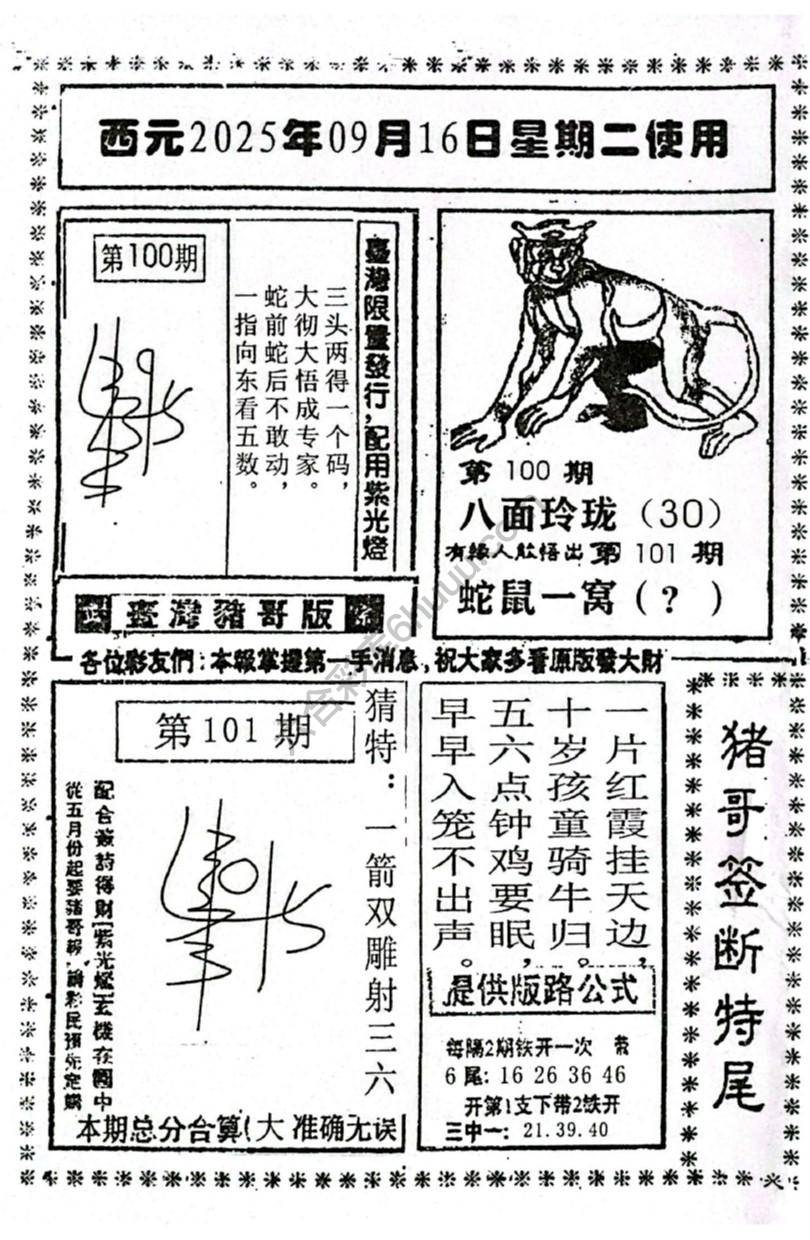 西元2025年09月16日星期二使用
第100期
三头两得一个码，
大彻大悟成专家。
蛇前蛇后不敢动，
一指向东看五数。
臺灣限量發行，配用紫光燈
臺灣豬哥版
第 100 期
八面玲珑（30）
有緣人能悟出第 101 期
蛇鼠一窝（？）
各位彩友們：本報掌握第一手消息，祝大家多看原版發大財
第101期
猜特：一箭双雕射三六
配合簽詩得財[紫光燈]玄機在圖中
從五月份起要豬哥報，請彩民預先定購
本期总分合算(大 准确无误
一片红霞挂天边，
十岁孩童骑牛归。
五六点钟鸡要眠，
早早入笼不出声。
提供版路公式
每隔2期铁开一次
6尾：16 26 36 46
开第1支下带2铁开
三中一：21.39.40
猪哥签断特尾
六合彩库6huuu.com